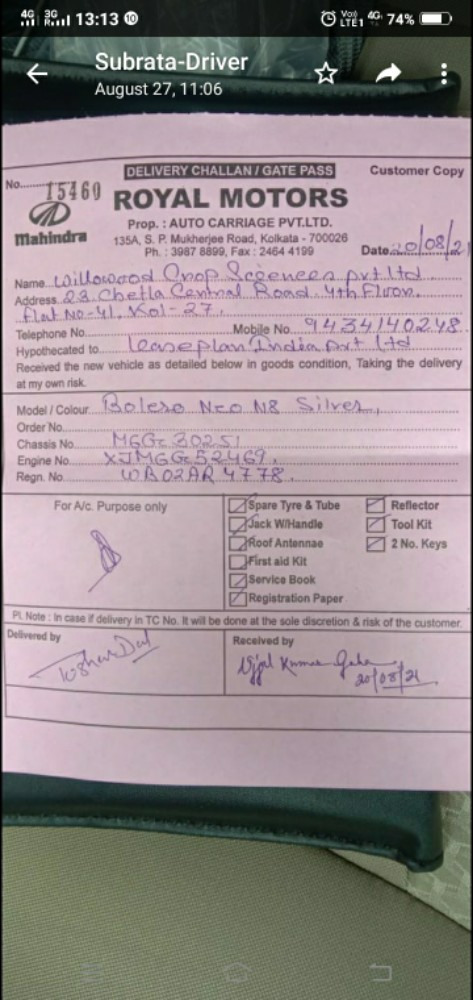 4G 3G R 13:13 Vo)) LTE1 4G 74%
Subrata-Driver
August 27, 11:06
DELIVERY CHALLAN / GATE PASS Customer Copy
No. 15460
ROYAL MOTORS
Mahindra
Prop. : AUTO CARRIAGE PVT.LTD.
135A, S. P. Mukherjee Road, Kolkata - 700026
Ph. : 3987 8899, Fax : 2464 4199 Date 20/08/21
Name Willowood Crop Sceences pvt ltd
Address 23 Chetla Central Road. 4th Floor.
flat No-41. Kol-27.
Telephone No. Mobile No. 9434140248
Hypothecated to Leaseplan India Pvt Ltd
Received the new vehicle as detailed below in goods condition, Taking the delivery
at my own risk.
Model / Colour Bolero Neo N8 Silver,
Order No.
Chassis No M6G 30251
Engine No. XJM6G52469.
Regn. No. WB02AR 4778.
For A/c. Purpose only
Spare Tyre & Tube Reflector
Jack W/Handle Tool Kit
Roof Antennae 2 No. Keys
First aid Kit
Service Book
Registration Paper
Pl. Note : In case if delivery in TC No. It will be done at the sole discretion & risk of the customer.
Delivered by Received by
Tushar Dal Ujjal Kumar
20/08/21